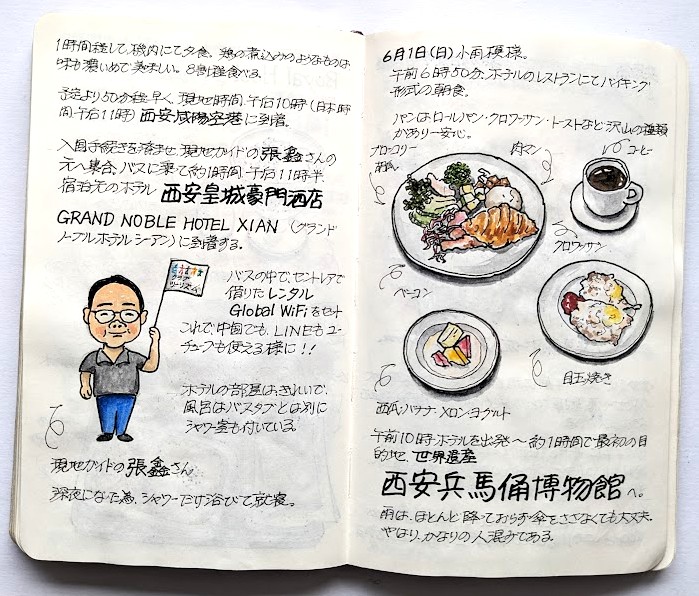 1時間程して、機内にて夕食。鶏の煮込みのようなものは
味も濃いめで美味しい。8割程食べる。
予定より50分程早く、現地時間 午后10時(日本時
間 午后11時) 西安咸陽空港に到着。
入国手続きを済ませ、現地ガイドの張鑫さんの
元へ集合。バスに乗って約1時間。午后11時半
宿泊先のホテル 西安皇城豪門酒店
GRAND NOBLE HOTEL XIAN (グランド
ノーブルホテルシーアン)に到着する。
クラブ
ツーリズム
バスの中で、セントレアで
借りたレンタル
Global WiFiをセット
これで中国でも、LINEもユー
チューブも使える様に!!
ホテルの部屋は、きれいで、
風呂はバスタブとは別に
シャワー室も付いている。
現地ガイドの張鑫さん
深夜になった為、シャワーだけ浴びて就寝。
6月1日(日) 小雨模様。
午前6時50分、ホテルのレストランにてバイキング
形式の朝食。
パンはロールパン・クロワッサン・トーストなど沢山の種類
があり一安心。
ブロッコリー
肉マン
コーヒー
クロワッサン
ベーコン
目玉焼き
西瓜・バナナ・メロン・ヨーグルト
午前10時ホテルを出発〜約1時間で最初の目
的地、世界遺産
西安兵馬俑博物館へ。
雨は、ほとんど降っておらず傘をささなくても大丈夫。
やはり、かなりの人混みである。